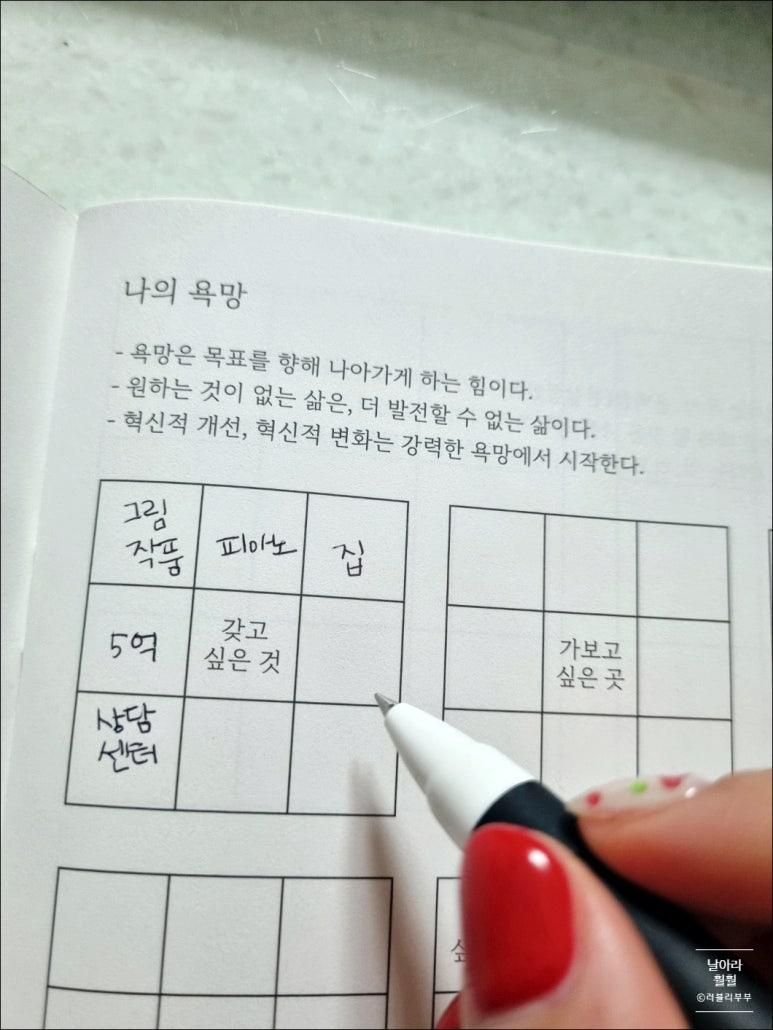 나의 욕망
- 욕망은 목표를 향해 나아가게 하는 힘이다.
- 원하는 것이 없는 삶은, 더 발전할 수 없는 삶이다.
- 혁신적 개선, 혁신적 변화는 강력한 욕망에서 시작한다.
그림
작품
피아노
집
5억
갖고
싶은 것
상담
센터
가보고
싶은 곳
날아라
훨훨
©러블리부부